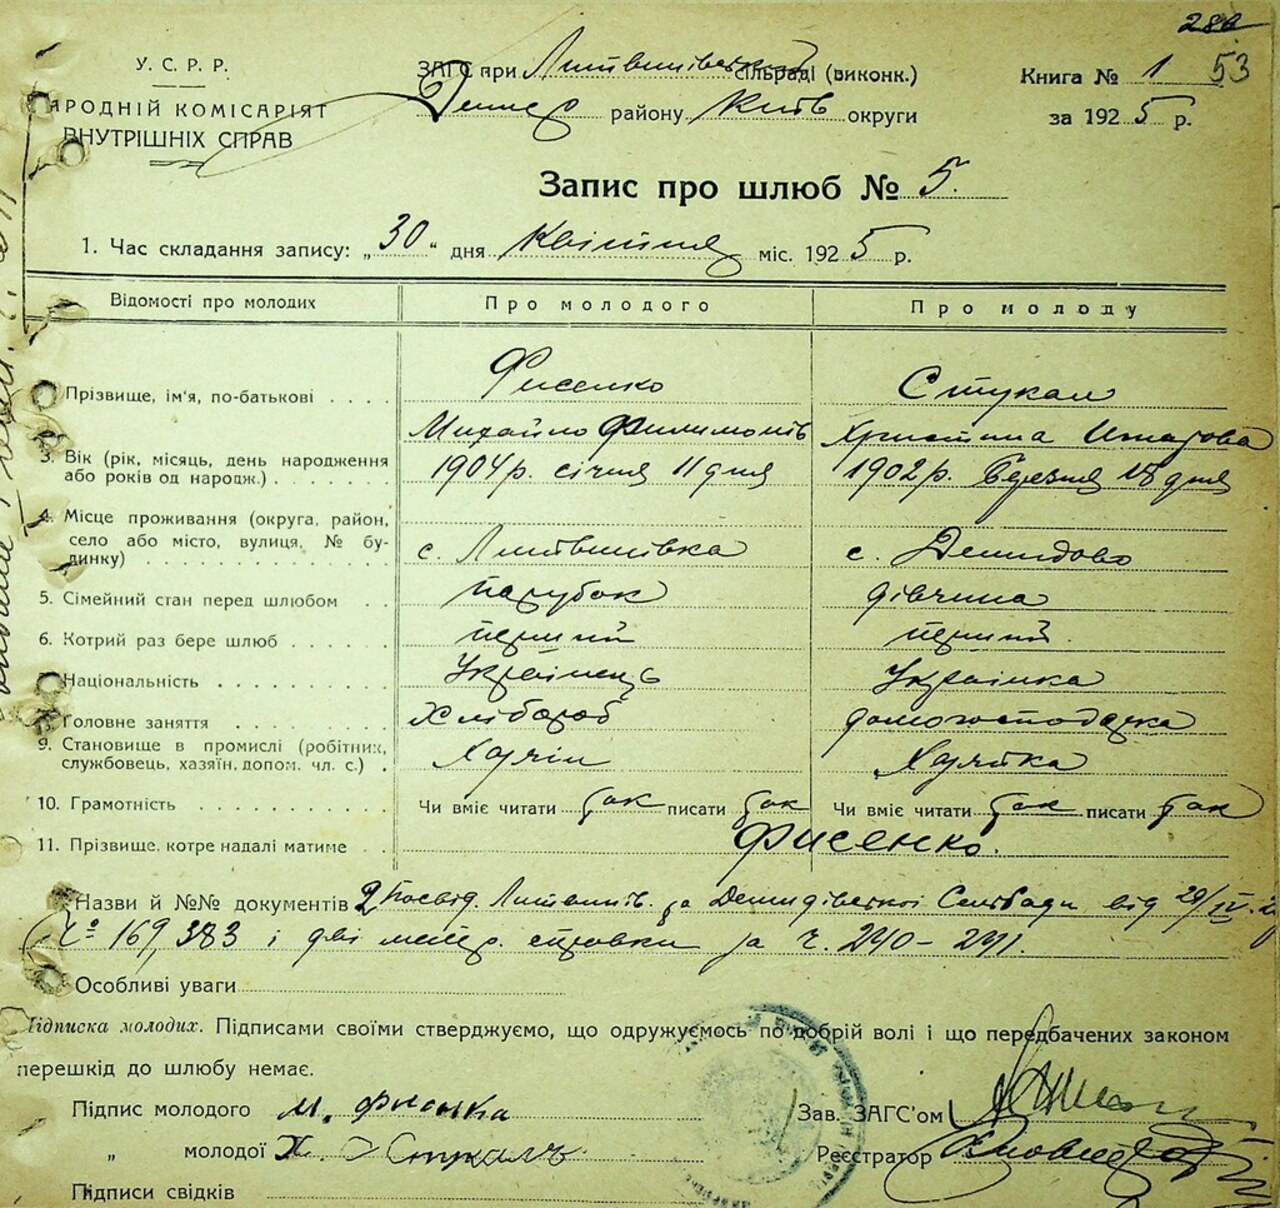 280
У. С. Р. Р.
НАРОДНІЙ КОМІСАРІЯТ
ВНУТРІШНІХ СПРАВ
ЗАГС при Литвинівській сільраді (виконк.)
Димер району Київ округи
Книга № 1 53
за 1925 р.
Запис про шлюб № 5.
1. Час складання запису: „30“ дня Квітня міс. 1925 р.
Відомості про молодих
Про молодого
Про молоду
Прізвище, ім'я, по-батькові
Фисенко
Михайло Филимонів
Стукал
Христина Игнатова
3. Вік (рік, місяць, день народження
або років од народж.)
1904 р. січня 11 дня
1902 р. Березня 18 дня
4. Місце проживання (округа, район,
село або місто, вулиця, № бу-
динку)
с. Литвинівка
с. Демидово
5. Сімейний стан перед шлюбом
парубок
дівчина
6. Котрий раз бере шлюб
перший
перший
7. Національність
Українець
Українка
8. Головне заняття
Хлібороб
домогосподарка
9. Становище в промислі (робітник,
службовець, хазяїн, допом. чл. с.)
Хазяїн
Хазяйка
10. Грамотність
Чи вміє читати так писати так
Чи вміє читати так писати так
11. Прізвище, котре надалі матиме
Фисенко.
Назви й №№ документів 2 Посвід. Литвинів. за Демидівської Сельради від 29/IV
№ 169, 383 і дві справки за ч. 240-241.
Особливі уваги
Підписка молодих. Підписами своїми стверджуємо, що одружуємось по добрій волі і що передбачених законом
перешкід до шлюбу немає.
Підпис молодого М. Фисенко
„ молодої Х. Стукалъ
Зав. ЗАГС'ом
Реєстратор
Підписи свідків